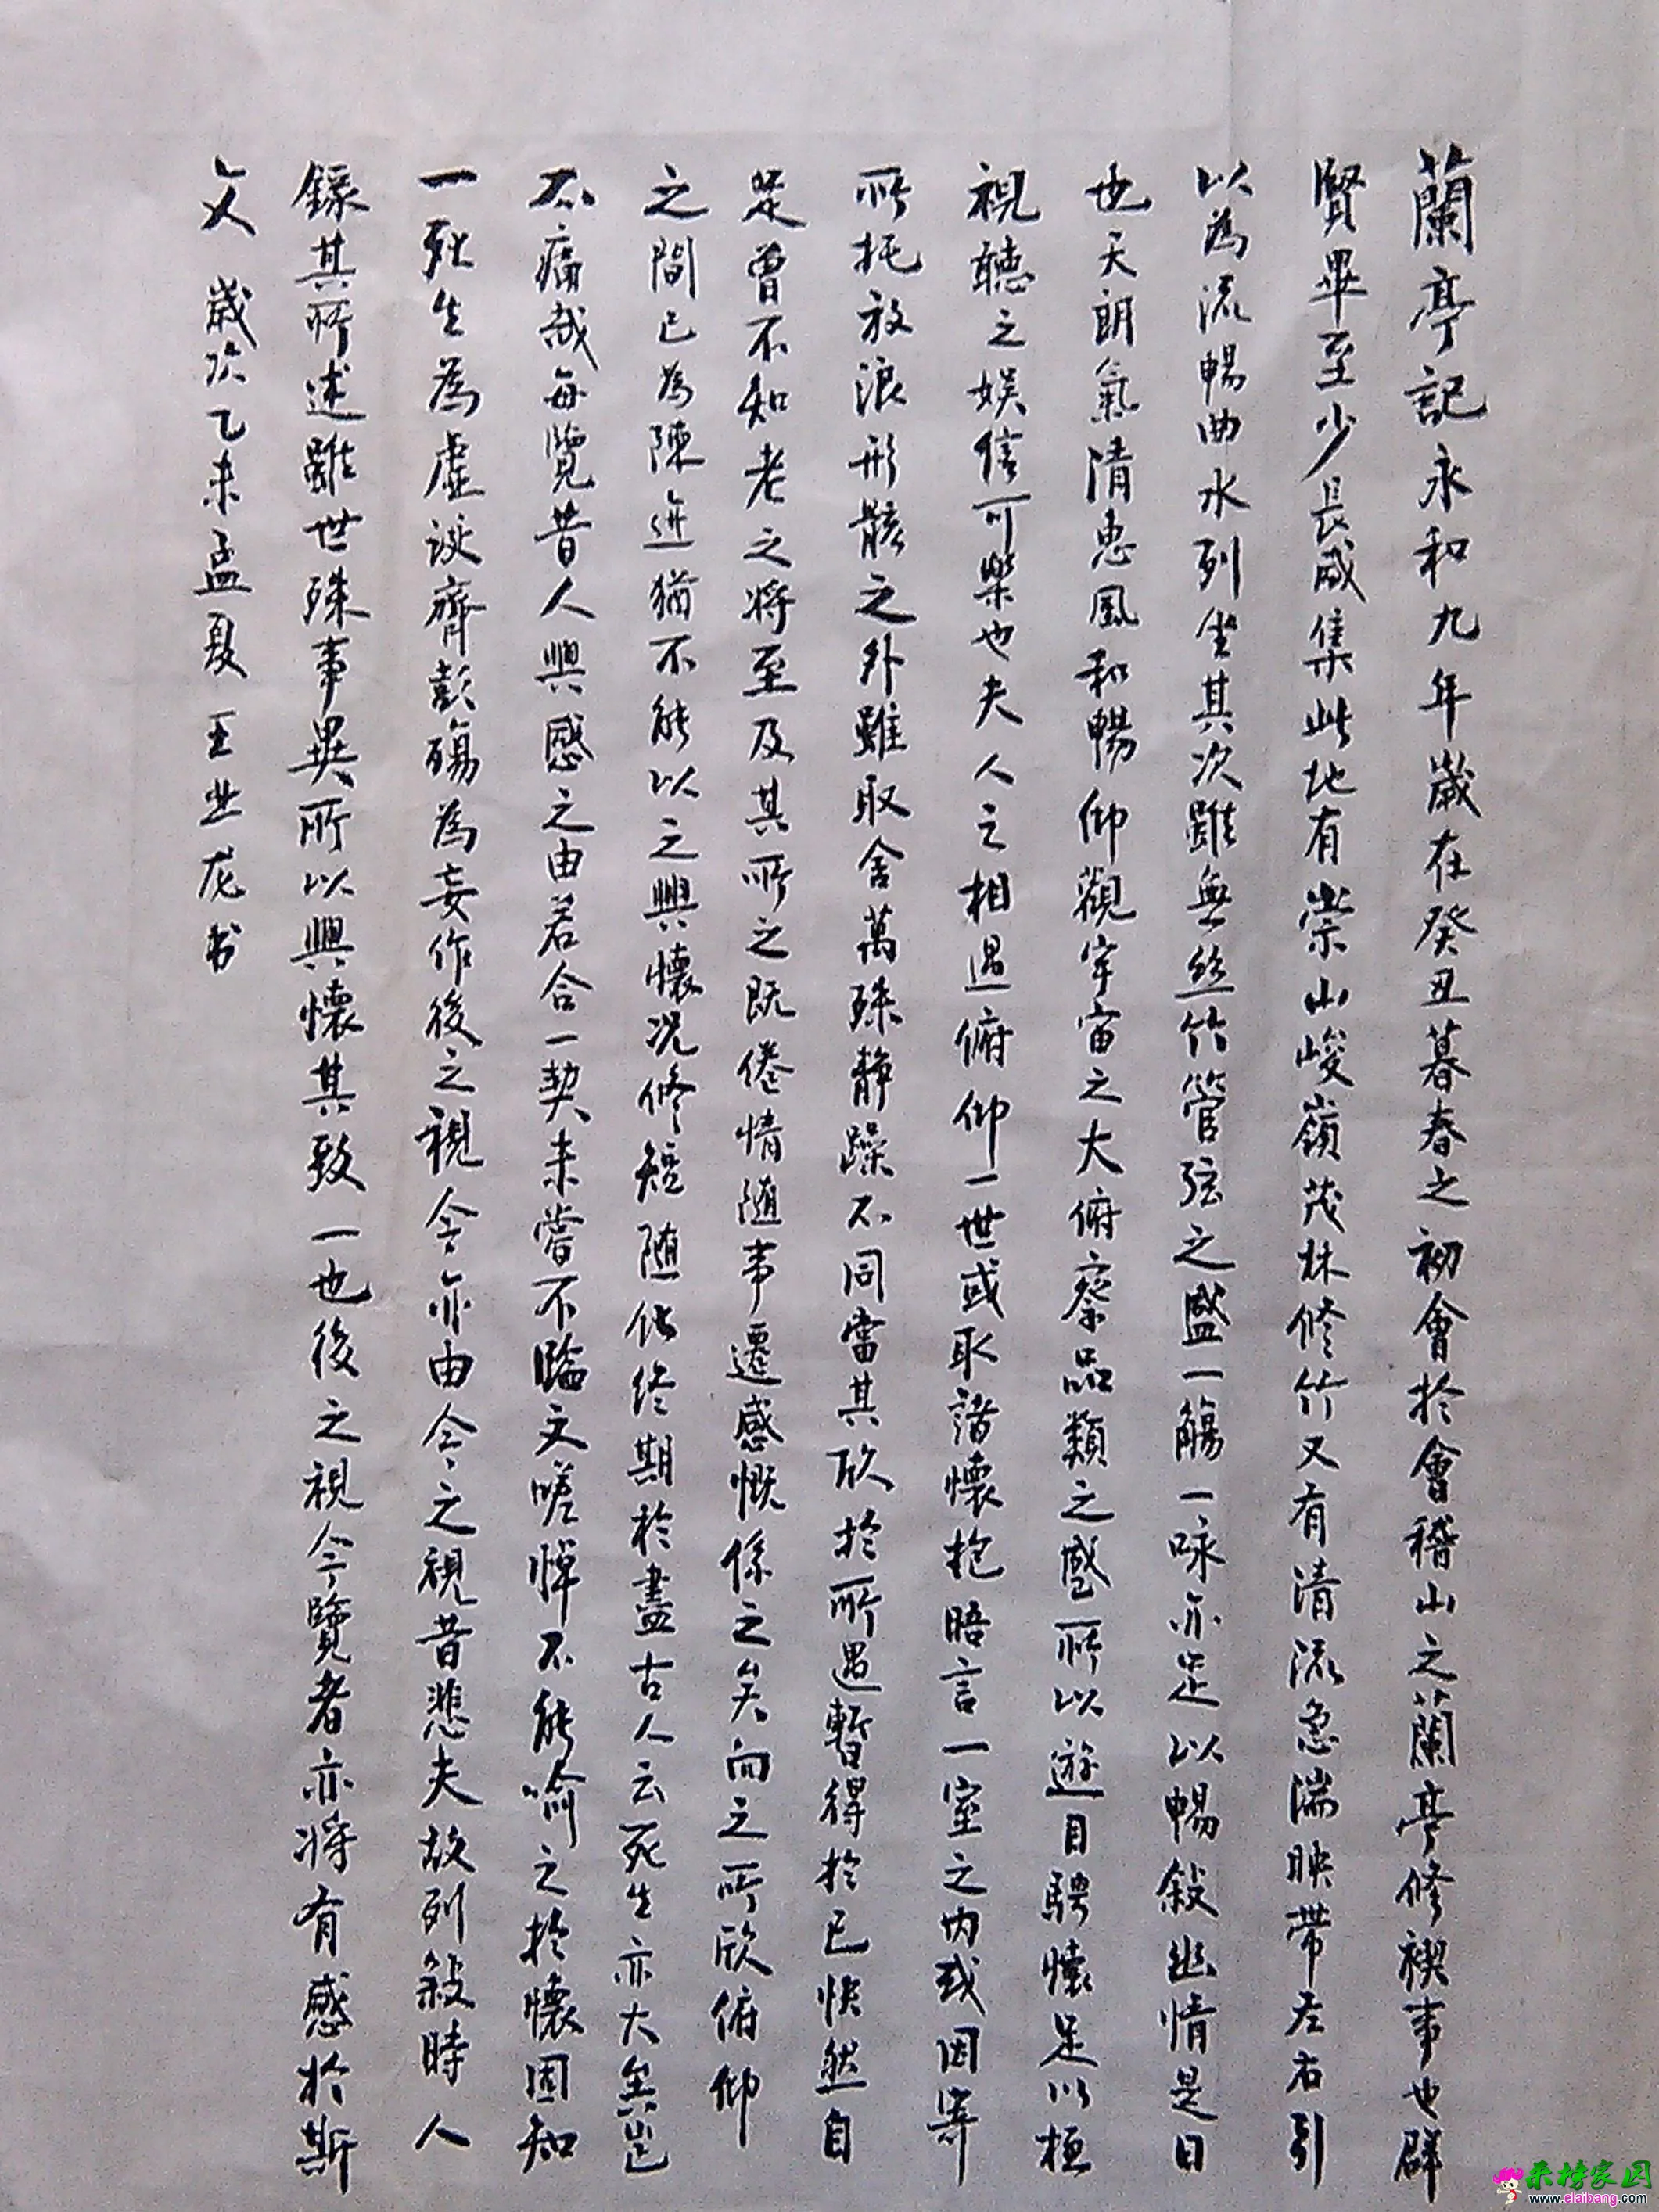 蘭亭記永和九年歲在癸丑暮春之初會於會稽山之蘭亭修禊事也群
賢畢至少長咸集此地有崇山峻嶺茂林修竹又有清流急湍映帶左右引
以為流暢曲水列坐其次雖無絲竹管弦之盛一觴一咏亦足以暢敍幽情是日
也天朗氣清惠風和暢仰觀宇宙之大俯察品類之盛所以遊目騁懷足以極
視聽之娱信可樂也夫人之相遇俯仰一世或取諸懷抱晤言一室之內或因寄
所托放浪形骸之外雖取舍萬殊靜躁不同當其欣於所遇暫得於己快然自
足曾不知老之將至及其所之既倦情隨事遷感慨係之矣向之所欣俯仰
之間已為陳迹猶不能以之興懷况修短随化終期於盡古人云死生亦大矣豈
不痛哉每覽昔人興感之由若合一契未嘗不臨文嗟悼不能喻之於懷固知
一死生為虛诞齊彭殤為妄作後之視今亦由今之視昔悲夫故列敍時人
錄其所述雖世殊事異所以興懷其致一也後之視今覽者亦將有感於斯
文 歲次乙未孟夏 王业龙书
来榜家园
www.elaibang.com